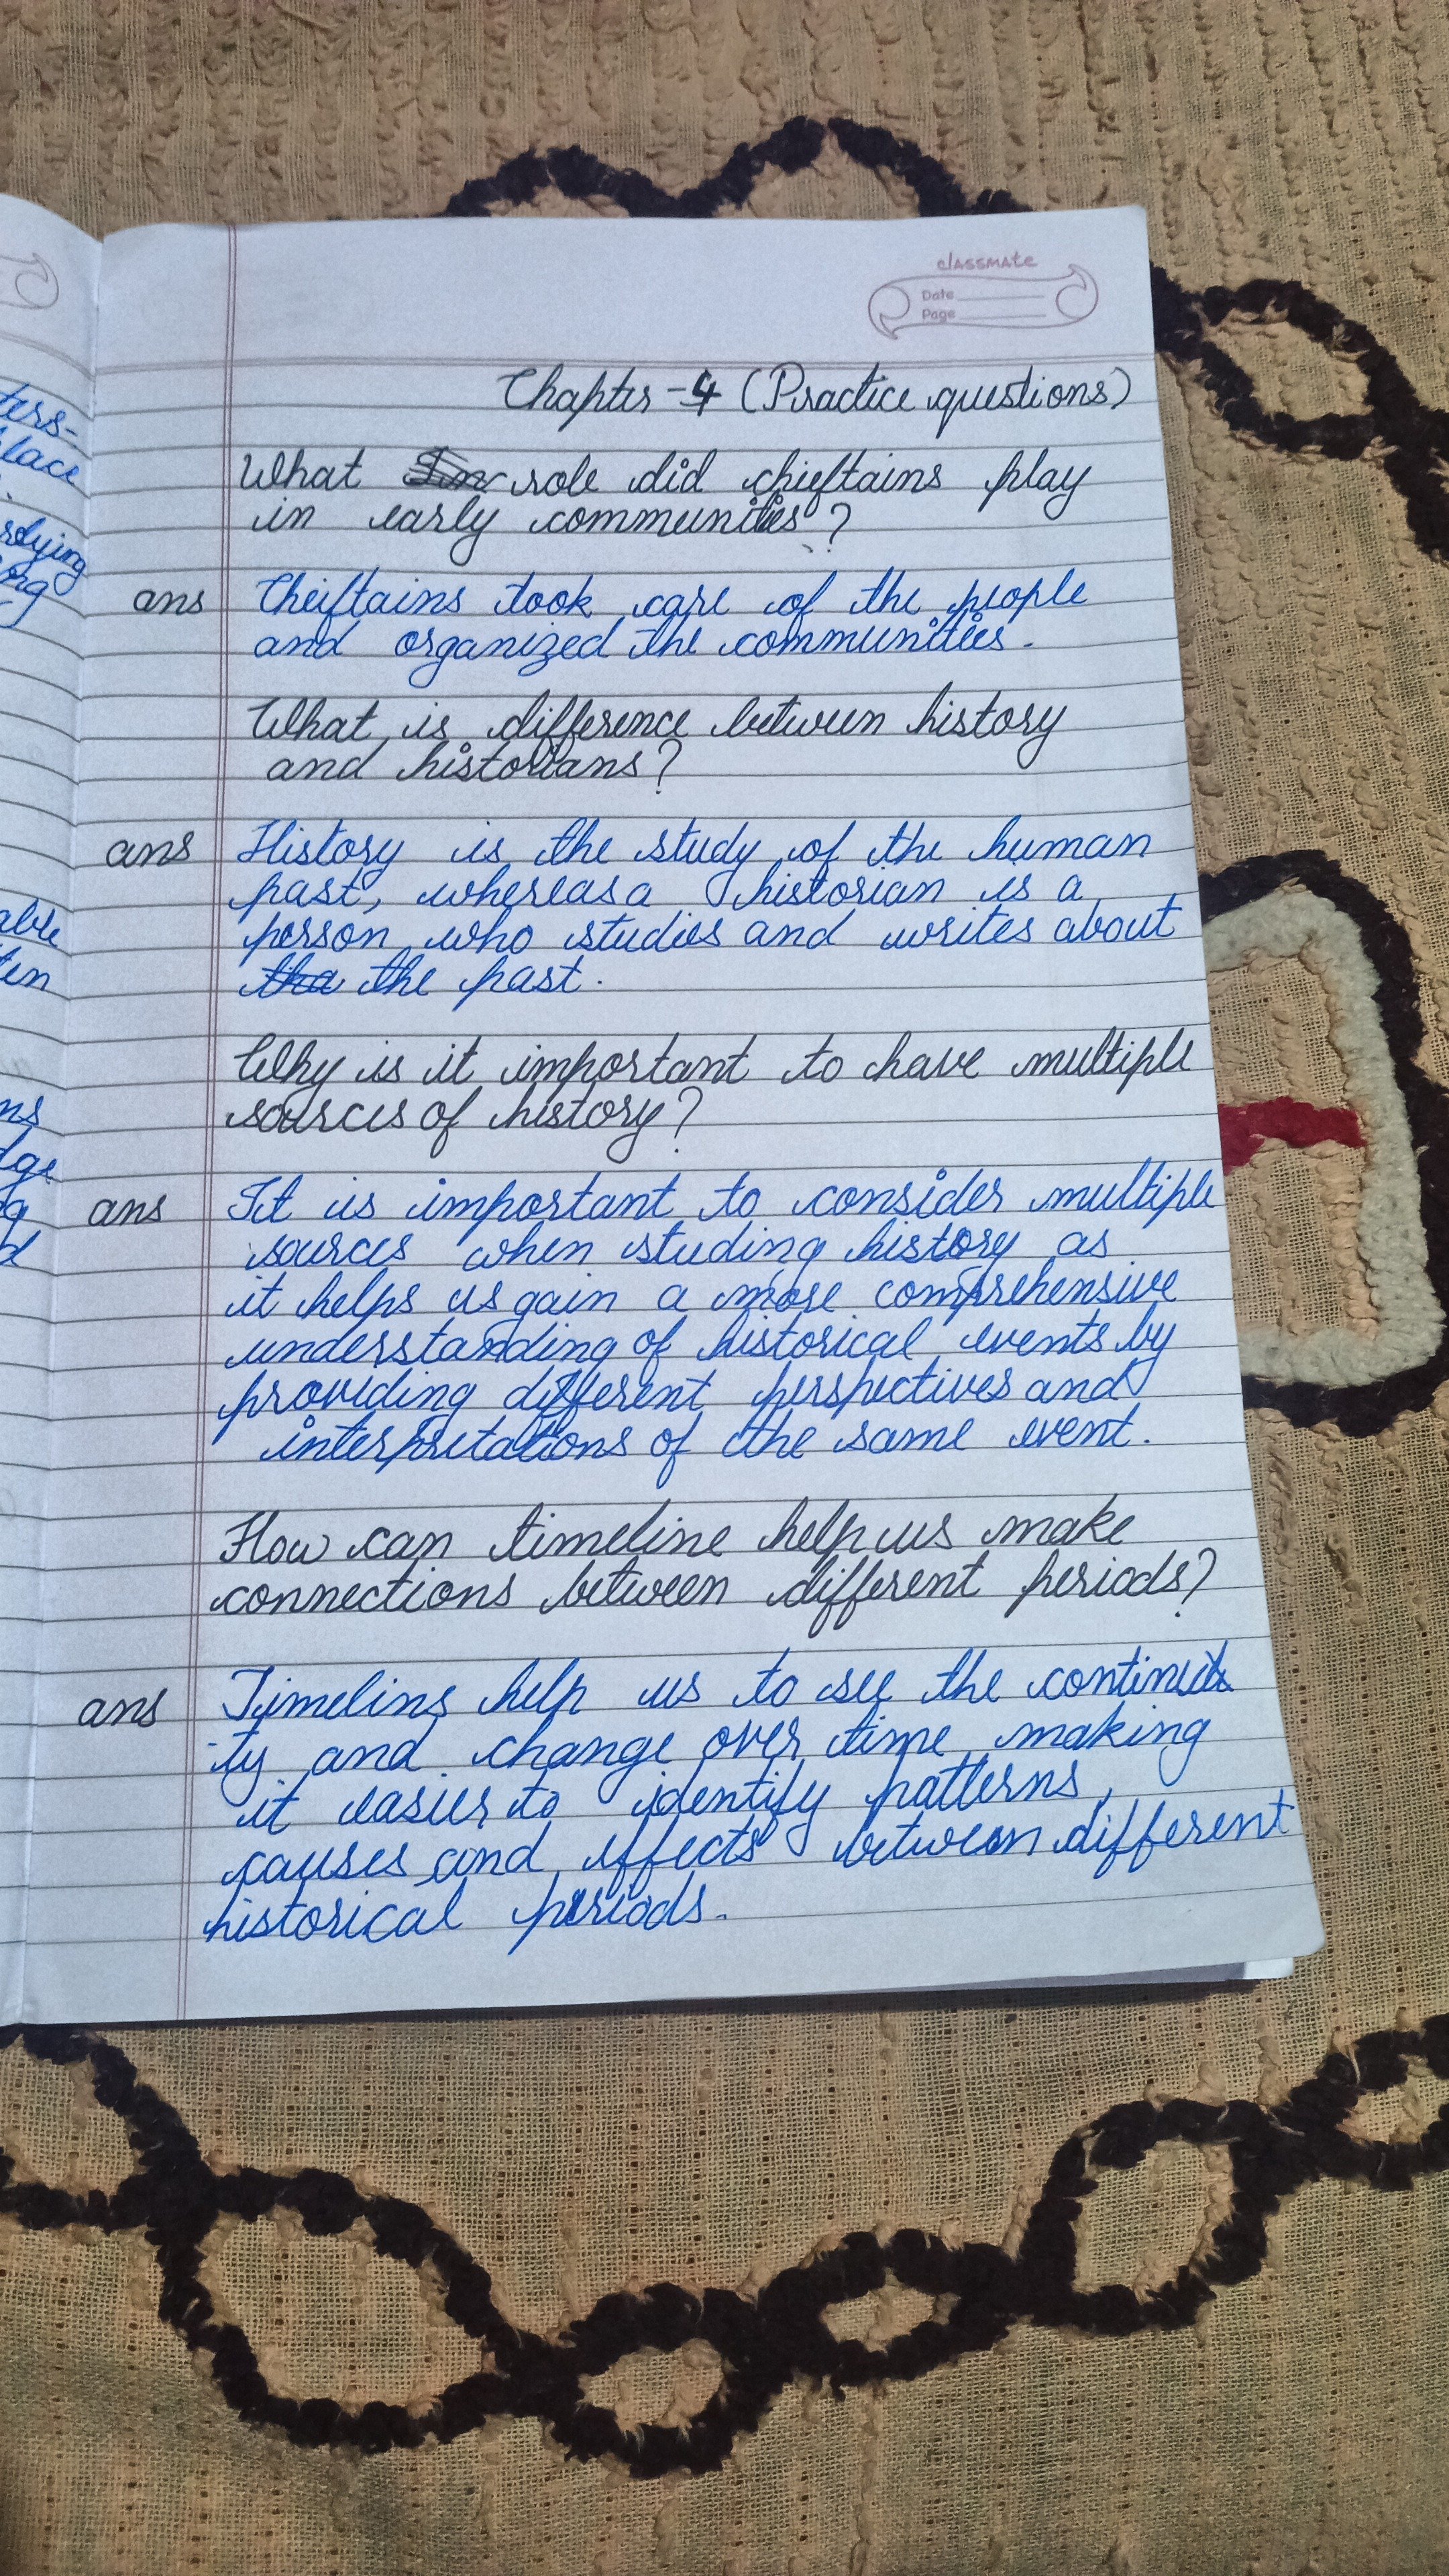 classmate
Date
Page
Chapter - 4 (Practice questions)
What role did chieftains play
in early communities?
ans Cheiftains took care of the people
and organized the communities.
What is difference between history
and historians?
ans History is the study of the human
past, whereas a historian is a
person who studies and writes about
tha the past.
Why is it important to have multiple
sources of history?
ans It is important to consider multiple
sources when studing history as
it helps us gain a more comprehensive
understanding of historical events by
providing different perspectives and
interpretations of the same event.
How can timeline help us make
connections between different periods?
ans Timelins help us to see the
ty and change over time making
it easier to identify patterns,
causes and effects between different
historical periods.